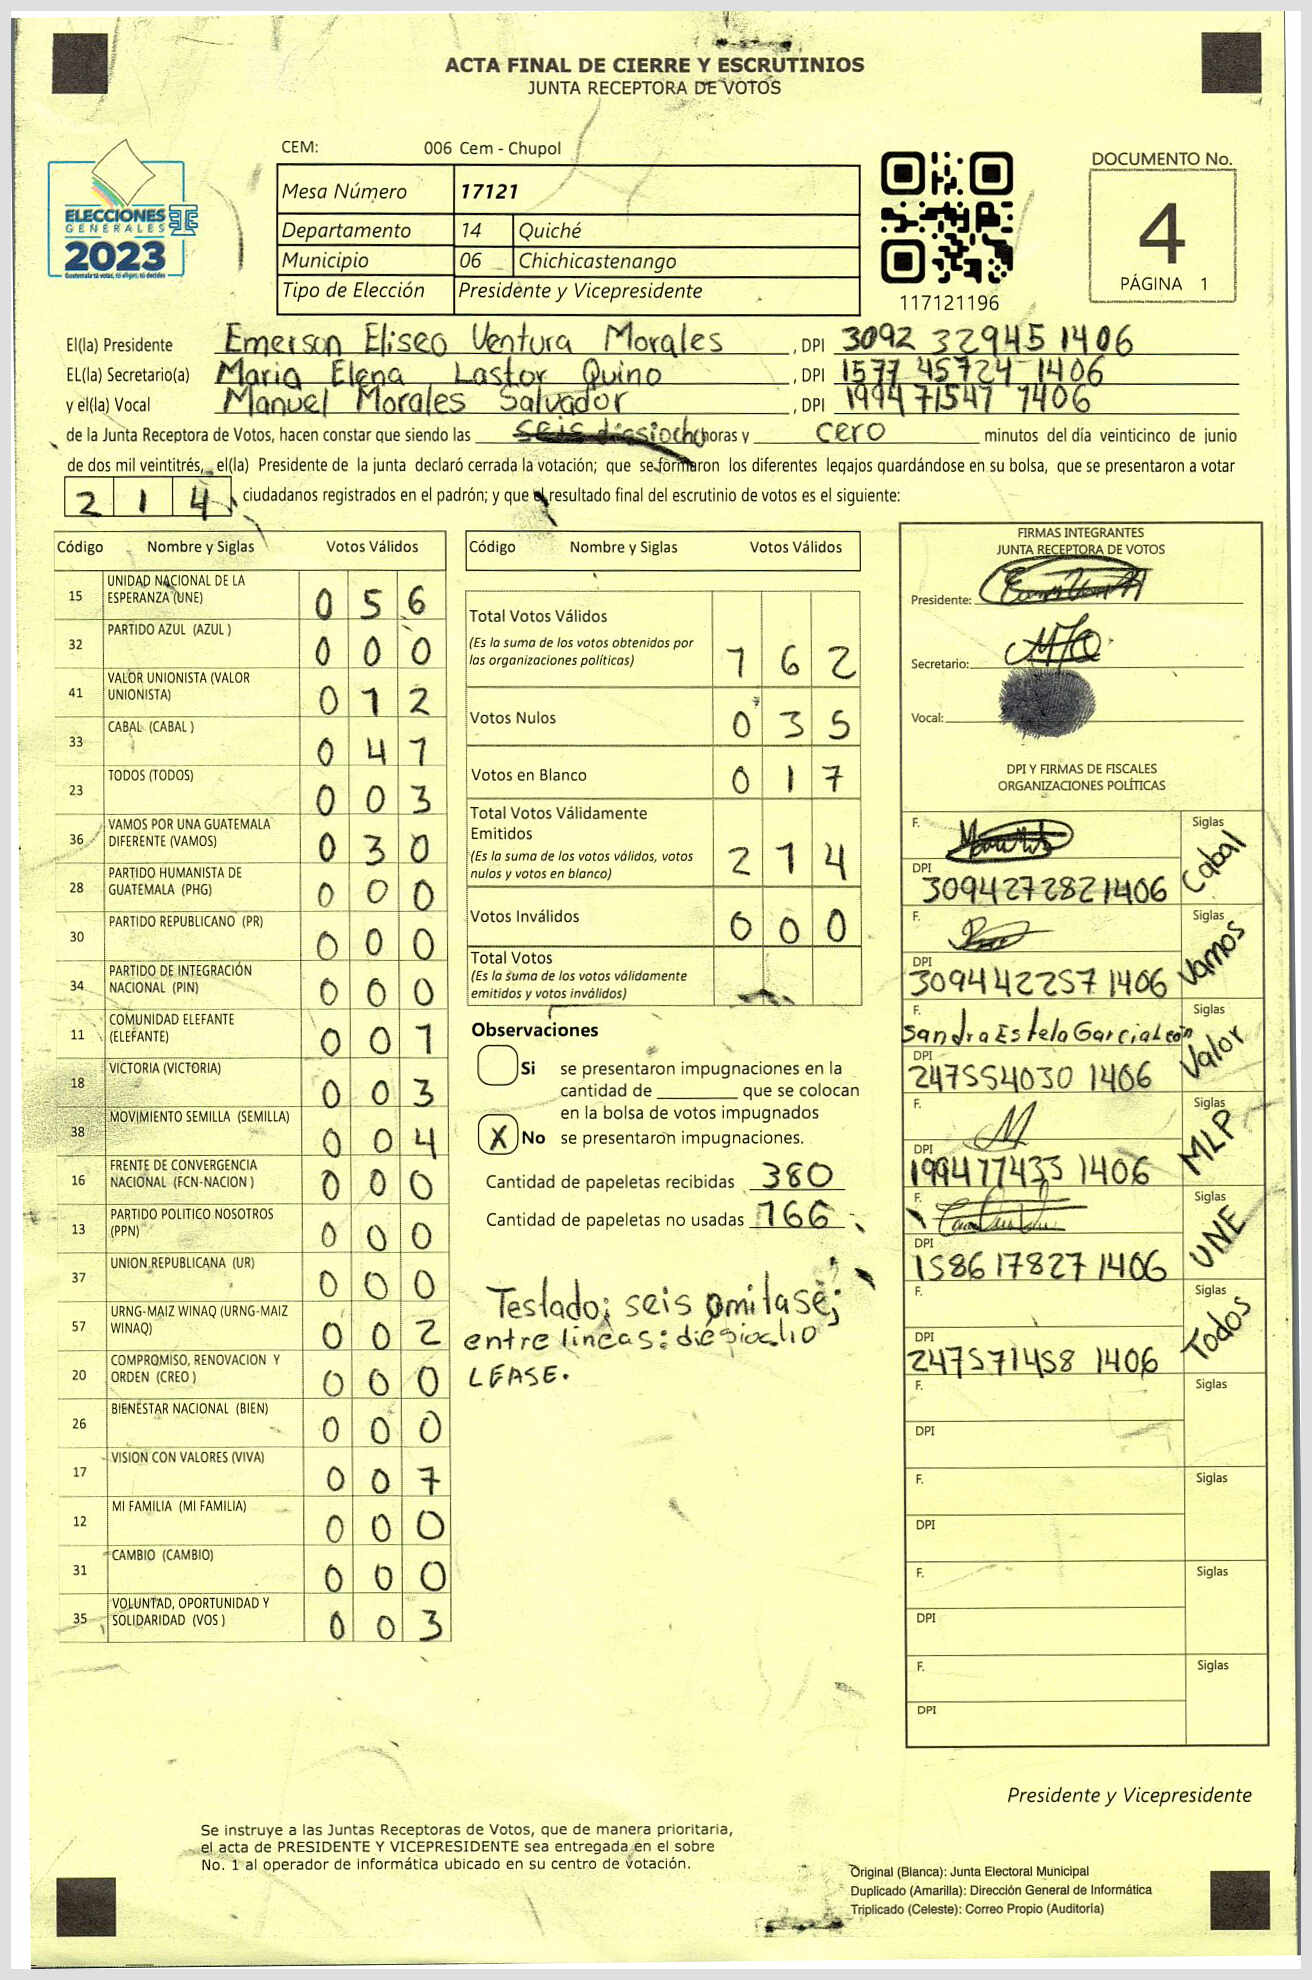 ACTA FINAL DE CIERRE Y ESCRUTINIOS
JUNTA RECEPTORA DE VOTOS
CEM: 006 Cem - Chupol
ELECCIONES
GENERALES
2023
Guatemala tú votas, tú eliges, tú decides
Mesa Número 17121
Departamento 14 Quiché
Municipio 06 Chichicastenango
Tipo de Elección Presidente y Vicepresidente
117121196
DOCUMENTO No.
4
PÁGINA 1
El(la) Presidente Emerson Eliseo Ventura Morales , DPI 3092 32945 1406
EL(la) Secretario(a) Maria Elena Lastor Quino , DPI 1577 45724 1406
y el(la) Vocal Manuel Morales Salvador , DPI 1994 71547 1406
de la Junta Receptora de Votos, hacen constar que siendo las seis diesiocho horas y cero minutos del día veinticinco de junio
de dos mil veintitrés, el(la) Presidente de la junta declaró cerrada la votación; que se formaron los diferentes legajos quardándose en su bolsa, que se presentaron a votar
214 ciudadanos registrados en el padrón; y que el resultado final del escrutinio de votos es el siguiente:
Código Nombre y Siglas Votos Válidos
15 UNIDAD NACIONAL DE LA ESPERANZA (UNE) 056
32 PARTIDO AZUL (AZUL ) 000
41 VALOR UNIONISTA (VALOR UNIONISTA) 012
33 CABAL (CABAL ) 041
23 TODOS (TODOS) 003
36 VAMOS POR UNA GUATEMALA DIFERENTE (VAMOS) 030
28 PARTIDO HUMANISTA DE GUATEMALA (PHG) 000
30 PARTIDO REPUBLICANO (PR) 000
34 PARTIDO DE INTEGRACIÓN NACIONAL (PIN) 000
11 COMUNIDAD ELEFANTE (ELEFANTE) 001
18 VICTORIA (VICTORIA) 003
38 MOVIMIENTO SEMILLA (SEMILLA) 004
16 FRENTE DE CONVERGENCIA NACIONAL (FCN-NACION ) 000
13 PARTIDO POLITICO NOSOTROS (PPN) 000
37 UNION REPUBLICANA (UR) 000
57 URNG-MAIZ WINAQ (URNG-MAIZ WINAQ) 002
20 COMPROMISO, RENOVACION Y ORDEN (CREO ) 000
26 BIENESTAR NACIONAL (BIEN) 000
17 VISION CON VALORES (VIVA) 007
12 MI FAMILIA (MI FAMILIA) 000
31 CAMBIO (CAMBIO) 000
35 VOLUNTAD, OPORTUNIDAD Y SOLIDARIDAD (VOS ) 003
Código Nombre y Siglas Votos Válidos
Total Votos Válidos 162
(Es la suma de los votos obtenidos por
las organizaciones políticas)
Votos Nulos 035
Votos en Blanco 017
Total Votos Válidamente
Emitidos 214
(Es la suma de los votos válidos, votos
nulos y votos en blanco)
Votos Inválidos 000
Total Votos
(Es la suma de los votos válidamente
emitidos y votos inválidos)
Observaciones
Si se presentaron impugnaciones en la
cantidad de ________ que se colocan
en la bolsa de votos impugnados
X No se presentaron impugnaciones.
Cantidad de papeletas recibidas 380
Cantidad de papeletas no usadas 166
Testado: seis omitase;
entre lineas: diesiocho
LEASE.
FIRMAS INTEGRANTES
JUNTA RECEPTORA DE VOTOS
Presidente:
Secretario:
Vocal:
DPI Y FIRMAS DE FISCALES
ORGANIZACIONES POLÍTICAS
F. Siglas Cabal
DPI 3094272821406
F. Siglas Vamos
DPI 3094422571406
F. Sandra Estela Garcia León Siglas Valor
DPI 247554030 1406
F. Siglas MLP
DPI 199477433 1406
F. Siglas UNE
DPI 1586 17827 1406
F. Siglas Todos
DPI 247571458 1406
F. Siglas
DPI
F. Siglas
DPI
F. Siglas
DPI
F. Siglas
DPI
Presidente y Vicepresidente
Se instruye a las Juntas Receptoras de Votos, que de manera prioritaria,
el acta de PRESIDENTE Y VICEPRESIDENTE sea entregada en el sobre
No. 1 al operador de informática ubicado en su centro de votación.
Original (Blanca): Junta Electoral Municipal
Duplicado (Amarilla): Dirección General de Informática
Triplicado (Celeste): Correo Propio (Auditoría)